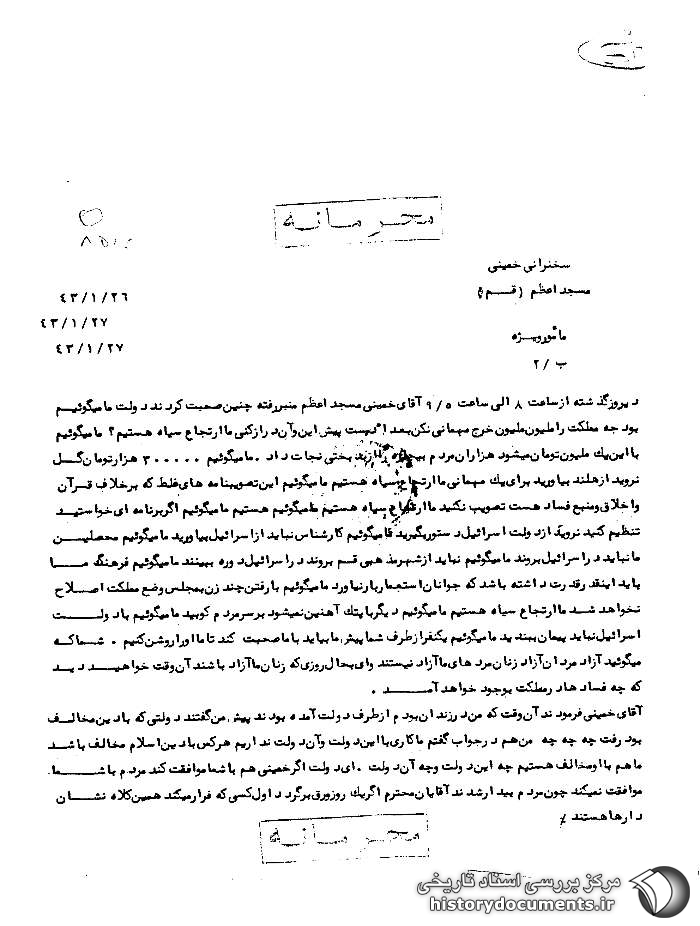 محرمانه
سخنرانی خمینی
مسجد اعظم (قم)
۴۳/۱/۲۶
۴۳/۱/۲۷
مأمور ویژه
۴۳/۱/۲۷
ب / ۲
دیروز گذشته از ساعت ۸ الی ساعت ۹/۵ آقای خمینی مسجد اعظم منبر رفته چنین صحبت کردند دولت ما میگوئیم
بودجه مملکت را ملیون ملیون خرج مهمانی نکن بعد از دست پیش این و آن دراز کنی ما ارتجاع سیاه هستیم ؟ مامیگوئیم
با این یك ملیون تومان میشود هزاران مردم بیچاره را از بدبختی نجات داد . مامیگوئیم ۳۰۰۰۰۰ هزار تومان گل
نروید از هلند بیاورید برای یك مهمانی ما ارتجاع سیاه هستیم مامیگوئیم این تصویبنامه های غلط که برخلاف قرآن
واخلاق ومنبع فساد هست تصویب نکنید ما ارتجاع سیاه هستیم مامیگوئیم هستیم مامیگوئیم اگر برنامه ای خواستید
تنظیم کنید نروید از دولت اسرائیل دستور بگیرید مامیگوئیم کارشناس نباید از اسرائیل بیاورید مامیگوئیم محصلین
ما نباید در اسرائیل بروند مامیگوئیم نباید از شهر مذهبی قم بروند در اسرائیل دوره ببینند مامیگوئیم فرهنگ ما
باید اینقدر قدرت داشته باشد که جوانان استعمار بار نیاورد مامیگوئیم با رفتن چند زن بمجلس وضع مملکت اصلاح
نخواهد شد ما ارتجاع سیاه هستیم مامیگوئیم دیگر با پتك آهنین نمیشود بر سر مردم کوبید مامیگوئیم با دولت
اسرائیل نباید پیمان ببندید مامیگوئیم یکنفر از طرف شما پیش ما بیاید با ما صحبت کند تا ما او را روشن کنیم . شما که
میگوئید آزاد مردان آزاد زنان مردهای ما آزاد نیستند وای بحال روزی که زنان ما آزاد باشند آن وقت خواهید دید
که چه فسادها در مملکت بوجود خواهد آمد .
آقای خمینی فرمودند آن وقت که من در زندان بودم از طرف دولت آمده بودند پیش من گفتند دولتی که با دین مخالف
بود رفت چه چه چه من هم در جواب گفتم ما کاری با این دولت و آن دولت نداریم هرکس با دین اسلام مخالف باشد
ما هم با او مخالف هستیم چه این دولت وچه آن دولت . ای دولت اگر خمینی هم با شما موافقت کند مردم با شما
موافقت نمیکند چون مردم بیدار شدند آقایان محترم اگر یك روز ورق برگردد اول کسی که فرار میکند همین کلاه نشان
دارها هستند
محرمانه
مرکز بررسی اسناد تاریخی
historydocuments.ir